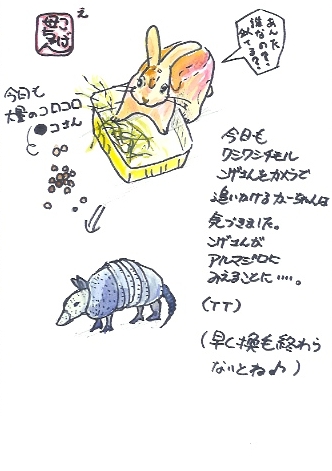 え
こっぱ
母ちゃん
あんた
誰なの?
似てる?
今日も
大量のコロコロ
●コさん
今日も
ワシワシチモル
ンゲさんをカメラで
追いかけるカーちゃんは
気づきました。
ンゲさんが
アルマジロに
みえることに‥‥。
(TT)
(早く換毛終わら
ないとね♪)